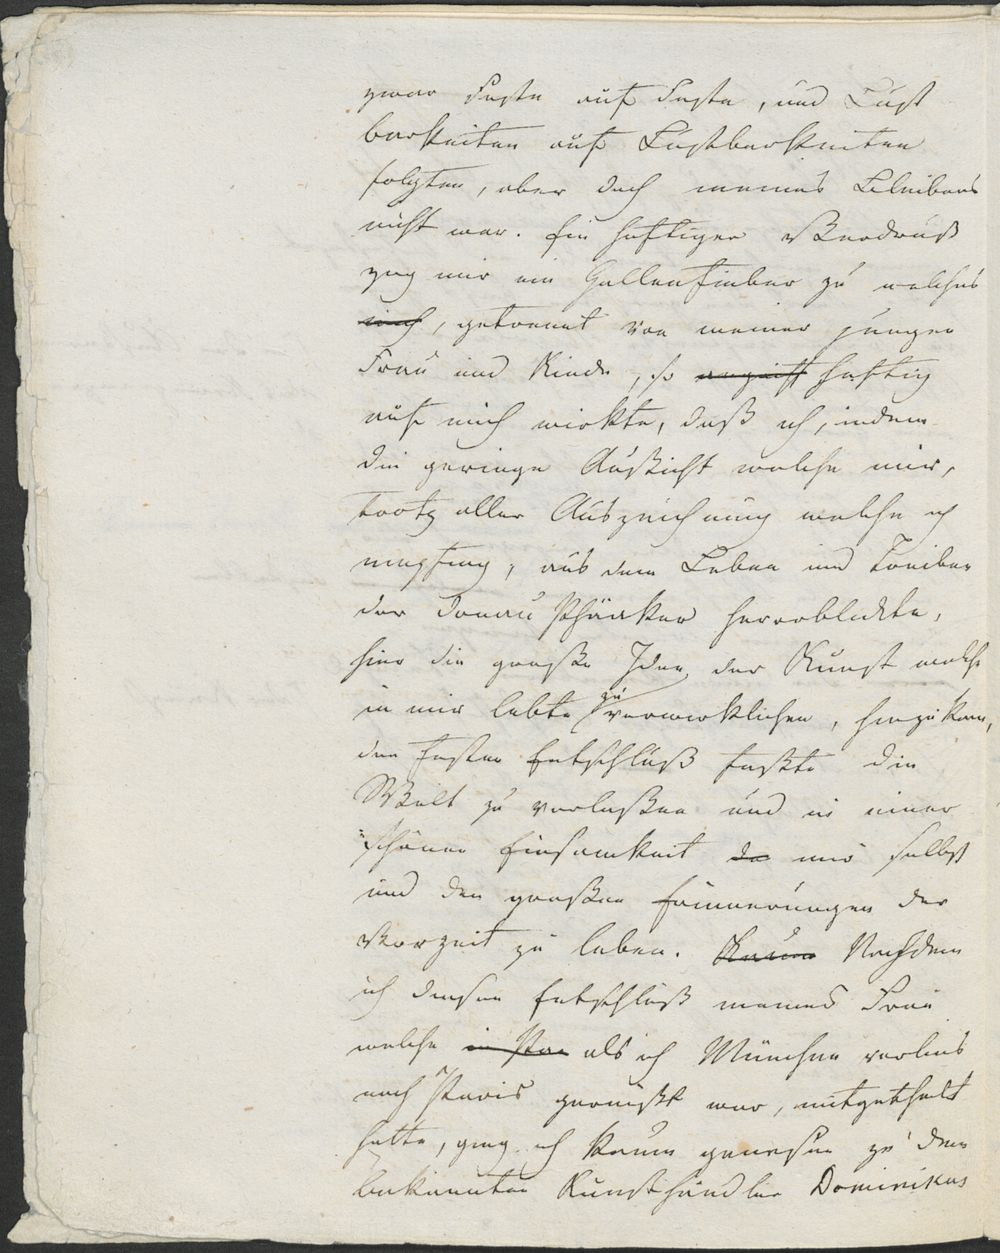 zwar Feste auf Feste, und Lust
barkeiten auf Lustbarkeiten
folgten, aber doch meines Bleibens
nicht war. Ein heftiger Verdruß
zog mir ein Gallenfieber zu welches
mich, getrennt von meiner jungen
Frau und Kinde, so angriff heftig
auf mich wirkte, daß ich, indem
die geringe Aussicht welche mir,
trotz aller Auszeichnung welche ich
empfing, aus dem Leben und Treiben
der hervorblickte,
hier die große Idee der Kunst welche
in mir lebte zu verwirklichen, hinzukam,
den festen Entschluß faßte die
Welt zu verlaßen und in einer
schönen Einsamkeit mir selbst
und den großen Erinnerungen der
Vorzeit zu leben. Kaum Nachdem
ich diesen Entschluß meiner Frau
welche in Par als ich München verlies
nach Paris gereißt war, mitgetheilt
hatte, ging ich kaum genesen zu dem
bekannten Kunsthändler Dominikus